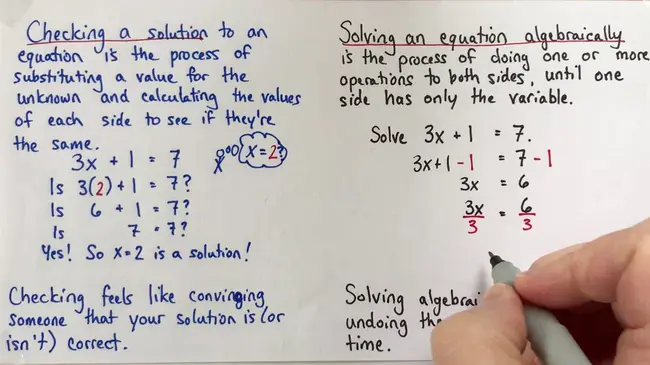 Checking a solution to an
equation is the process of
substituting a value for the
unknown and calculating the values
of each side to see if they're
the same.
3x + 1 = 7
x = 2?
Is 3(2) + 1 = 7?
Is 6 + 1 = 7?
Is 7 = 7?
Yes! So x=2 is a solution!
Checking feels like convinging
someone that your solution is (or
isn't) correct.
Solving an equation algebraically
is the process of doing one or more
operations to both sides, until one
side has only the variable.
Solve 3x + 1 = 7.
3x+1 -1 = 7 -1
3x = 6
3x/3 = 6/3
Solving
undoing
time.